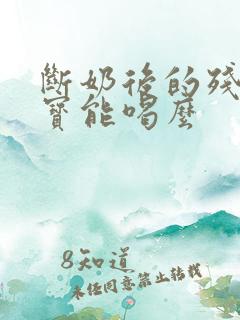 斷奶後的殘
寶能喝麼
8知道
未经同意禁止转载